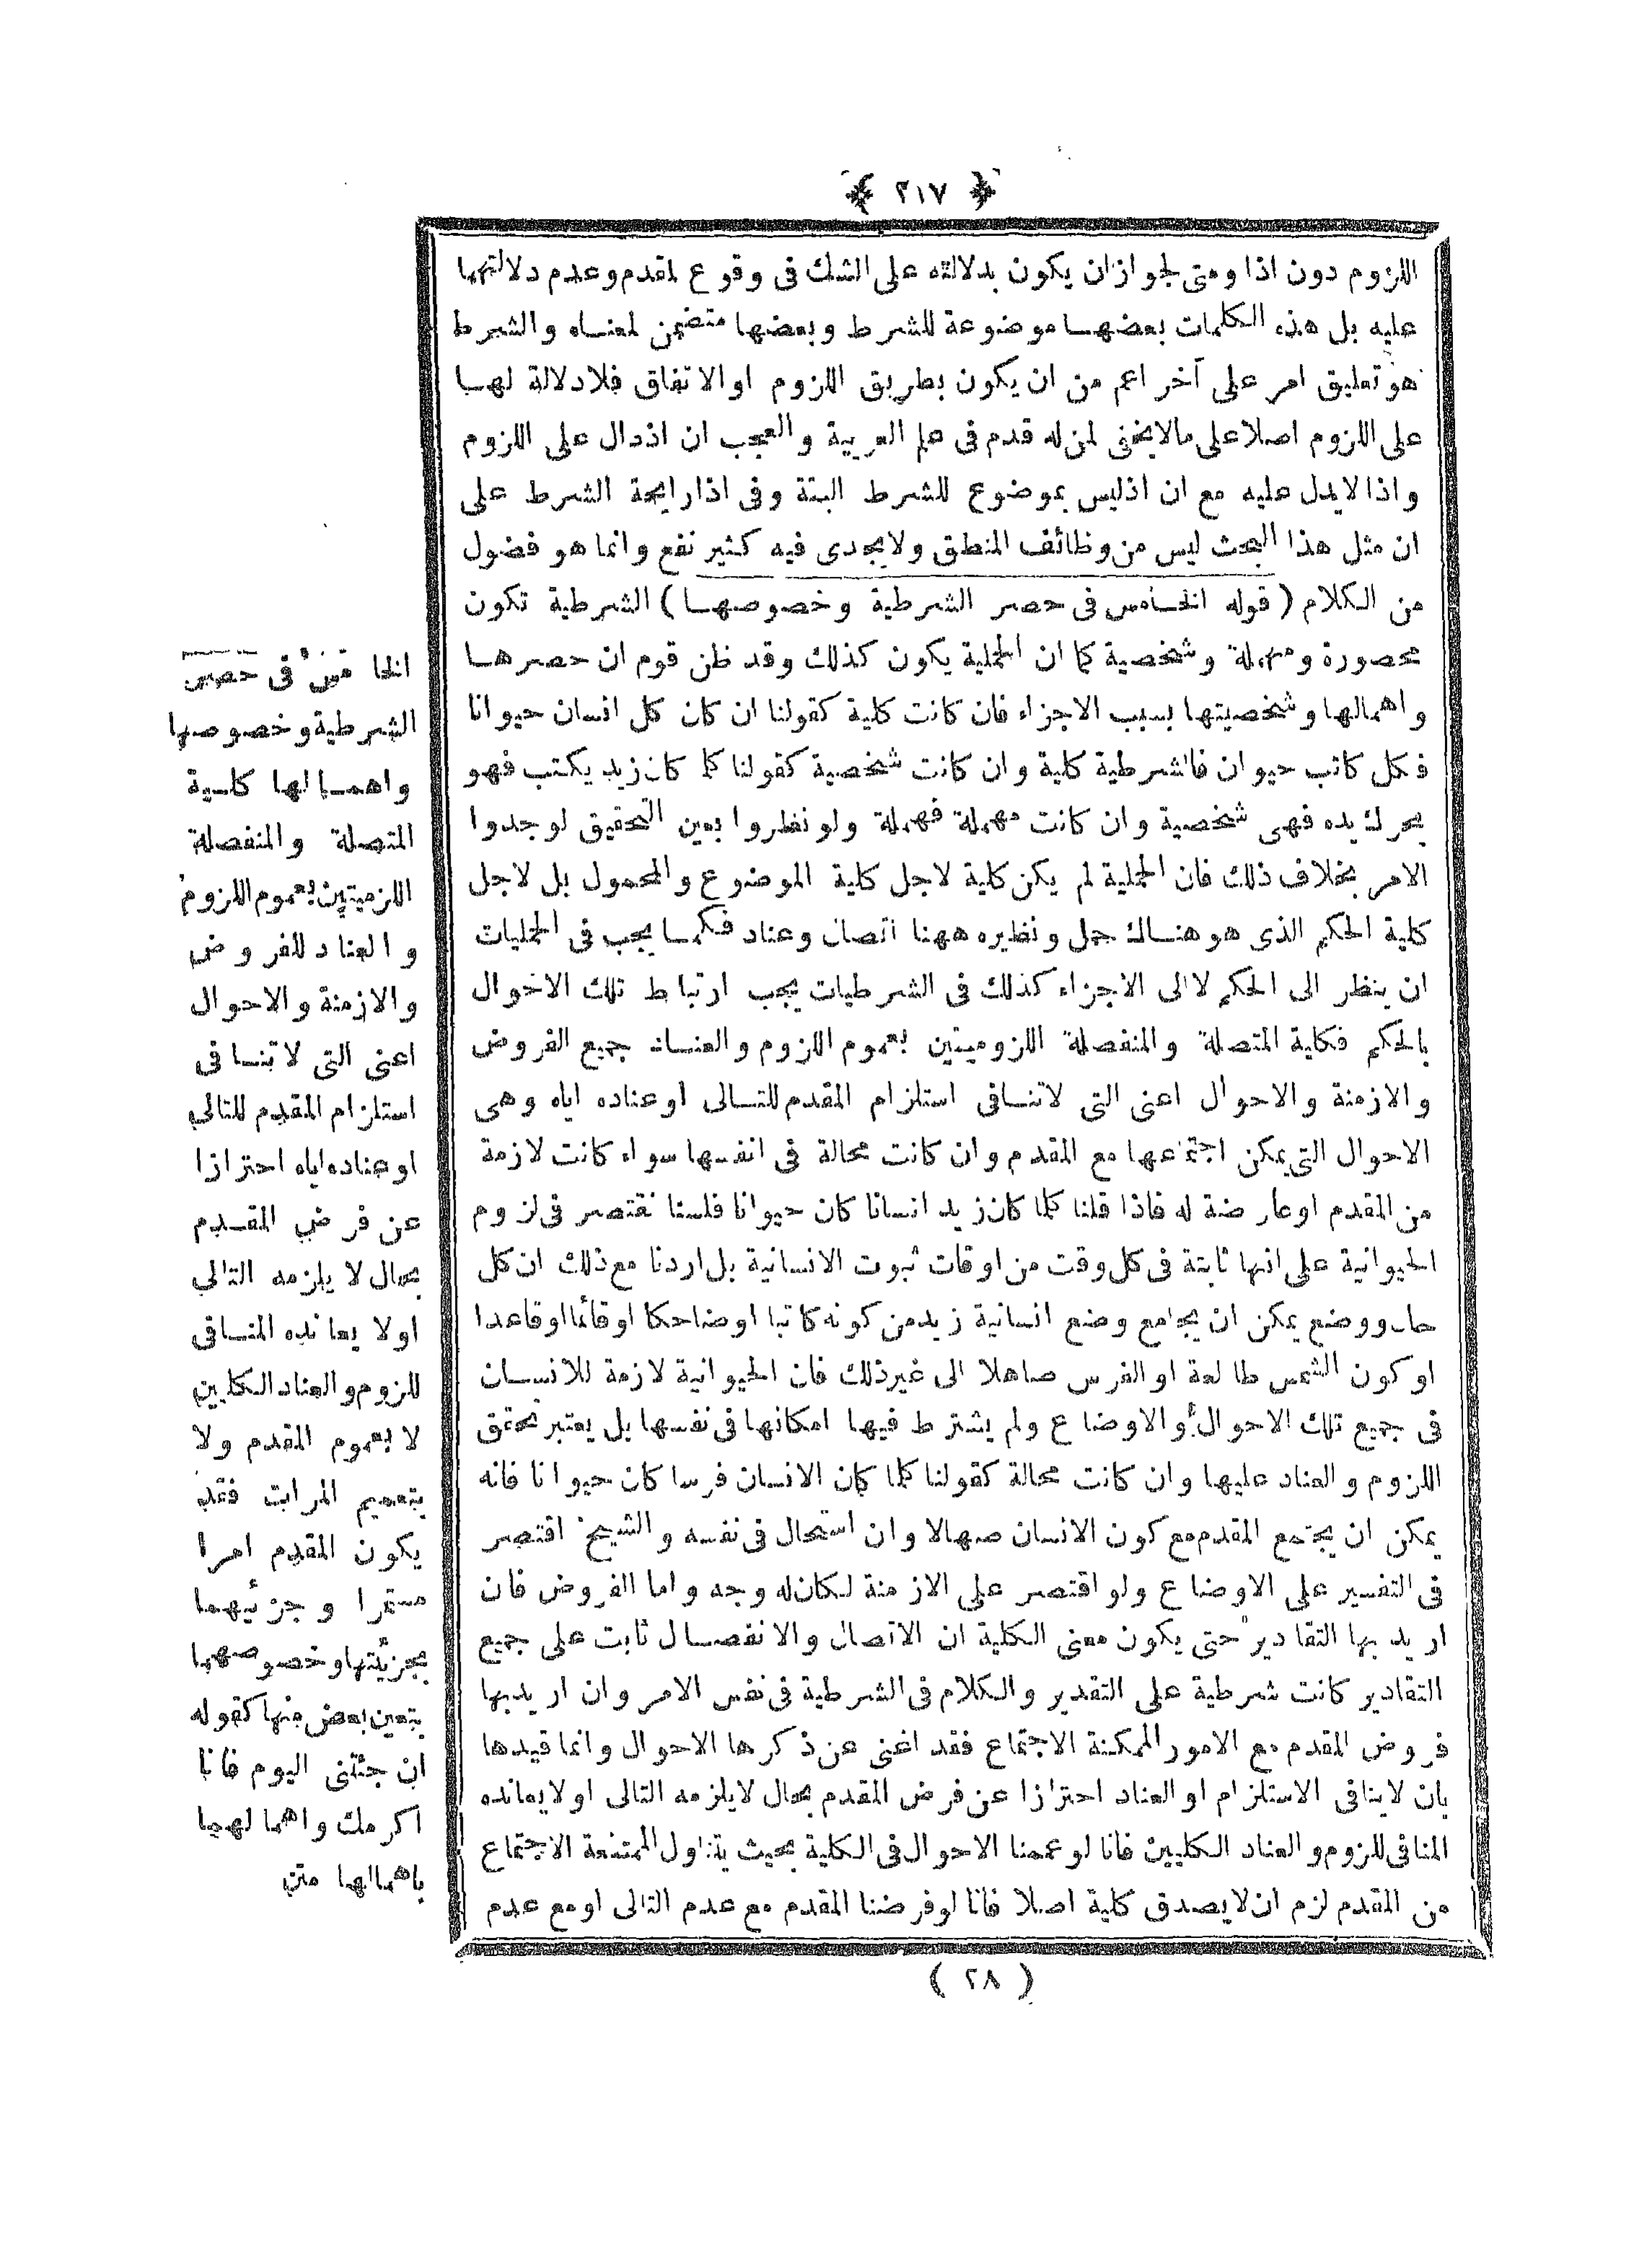 ﴿ ٢١٧ ﴾
اللزوم دون اذا ومتى لجواز ان يكون بدلالته على الشك فى وقوع المقدم وعدم دلالتهما
عليه بل هذه الكلمات بعضها موضوعة للشرط وبعضها متضمن لمعناه والشرط
هو تعليق امر على آخر اعم من ان يكون بطريق اللزوم او الاتفاق فلا دلالة لها
على اللزوم اصلا على ما لا يخفى لمن له قدم فى علم العربية والعجب ان اذ دال على اللزوم
واذا لا يدل عليه مع ان اذ ليس بموضوع للشرط البتة وفى اذا رايحة الشرط على
ان مثل هذا البحث ليس من وظائف المنطق ولا يجدى فيه كثير نفع وانما هو فضول
من الكلام ( قوله الخامس فى حصر الشرطية وخصوصها ) الشرطية تكون
محصورة ومهملة وشخصية كما ان الحملية يكون كذلك وقد ظن قوم ان حصرها
واهمالها وشخصيتها بسبب الاجزاء فان كانت كلية كقولنا ان كان كل انسان حيوانا
فكل كاتب حيوان فالشرطية كلية وان كانت شخصية كقولنا كلما كان زيد يكتب فهو
يحرك يده فهى شخصية وان كانت مهملة فهملة ولو نظروا بعين التحقيق لوجدوا
الامر بخلاف ذلك فان الحملية لم يكن كلية لاجل كلية الموضوع والمحمول بل لاجل
كلية الحكم الذى هو هناك حمل ونظيره ههنا اتصال وعناد فكما يجب فى الحمليات
ان ينظر الى الحكم لا الى الاجزاء كذلك فى الشرطيات يجب ارتباط تلك الاحوال
بالحكم فكلية المتصلة والمنفصلة اللزوميتين بعموم اللزوم والعناد جميع الفروض
والازمنة والاحوال اعنى التى لا تنافى استلزام المقدم للتالى او عناده اياه وهى
الاحوال التى يمكن اجتماعها مع المقدم وان كانت محالة فى انفسها سواء كانت لازمة
من المقدم او عارضة له فاذا قلنا كلما كان زيد انسانا كان حيوانا فلسنا نقتصر فى لزوم
الحيوانية على انها ثابتة فى كل وقت من اوقات ثبوت الانسانية بل اردنا مع ذلك ان كل
حال ووضع يمكن ان يجامع وضع انسانية زيد من كونه كاتبا او ضاحكا او قائما او قاعدا
او كون الشمس طالعة او الفرس صاهلا الى غير ذلك فان الحيوانية لازمة للانسان
فى جميع تلك الاحوال والاوضاع ولم يشترط فيها امكانها فى نفسها بل يعتبر تحقق
اللزوم والعناد عليها وان كانت محالة كقولنا كلما كان الانسان فرسا كان حيوانا فانه
يمكن ان يجتمع المقدم مع كون الانسان صهالا وان استحال فى نفسه والشيخ اقتصر
فى التفسير على الاوضاع ولو اقتصر على الازمنة لكان له وجه واما الفروض فان
اريد بها التقادير حتى يكون معنى الكلية ان الاتصال والانفصال ثابت على جميع
التقادير كانت شرطية على التقدير والكلام فى الشرطية فى نفس الامر وان اريد بها
فروض المقدم مع الامور الممكنة الاجتماع فقد اغنى عن ذكرها الاحوال وانما قيدها
بان لا ينافى الاستلزام او العناد احترازا عن فرض المقدم بحال لا يلزمه التالى او لا يعانده
المنافى للزوم والعناد الكليين فانا لو عممنا الاحوال فى الكلية بحيث يتناول الممتنعة الاجتماع
من المقدم لزم ان لا يصدق كلية اصلا فانا لو فرضنا المقدم مع عدم التالى او مع عدم
( ٢٨ )
الخامس فى حصر
الشرطية وخصوصها
واهمالها كلية
المتصلة والمنفصلة
اللزميتين بعموم اللزوم
والعناد للفروض
والازمنة والاحوال
اعنى التى لا تنافى
استلزام المقدم للتالى
او عناده اياه احترازا
عن فرض المقدم
بحال لا يلزمه التالى
او لا يعانده المنافى
للزوم والعناد الكليين
لا بعموم المقدم ولا
بتعميم المرات فقد
يكون المقدم امرا
مستمرا وجزئيهما
بجزئيتها وخصوصهما
بتعين بعض منها كقوله
ان جئتنى اليوم فانا
اكرمك واهمالهما
باهمالها متن